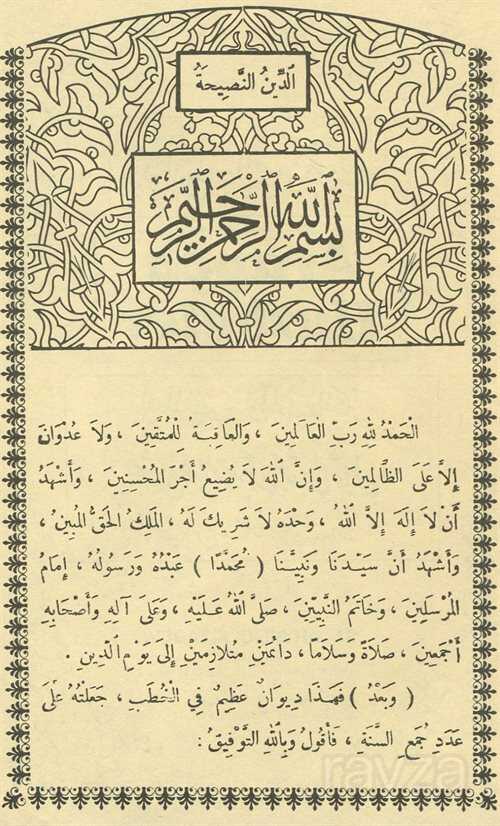 الدِّينُ النَّصِيحَةُ
بِسْمِ اللهِ الرَّحْمٰنِ الرَّحِيمِ
الْحَمْدُ لِلهِ رَبِّ الْعَالَمِينَ ، وَالْعَاقِبَةُ لِلْمُتَّقِينَ ، وَلَا عُدْوَانَ
إِلَّا عَلَى الظَّالِمِينَ ، وَإِنَّ اللهَ لَا يُضِيعُ أَجْرَ الْمُحْسِنِينَ ، وَأَشْهَدُ
أَنْ لَا إِلَهَ إِلَّا اللهُ ، وَحْدَهُ لَا شَرِيكَ لَهُ ، الْمَلِكُ الْحَقُّ الْمُبِينُ ،
وَأَشْهَدُ أَنَّ سَيِّدَنَا وَنَبِيَّنَا ( مُحَمَّدًا ) عَبْدُهُ وَرَسُولُهُ ، إِمَامُ
الْمُرْسَلِينَ ، وَخَاتَمُ النَّبِيِّينَ ، صَلَّى اللهُ عَلَيْهِ ، وَعَلَى آلِهِ وَأَصْحَابِهِ
أَجْمَعِينَ ، صَلَاةً وَسَلَامًا ، دَائِمَيْنِ مُتَلَازِمَيْنِ إِلَى يَوْمِ الدِّينِ .
( وَبَعْدُ ) فَهَذَا دِيوَانٌ عَظِيمٌ فِي الْخُطَبِ ، جَعَلْتُهُ عَلَى
عَدَدِ جُمَعِ السَّنَةِ ، فَأَقُولُ وَبِاللهِ التَّوْفِيقُ :
ravza